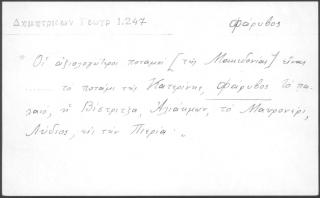 Δημητριέων Γεωγρ 1.247
φάρυβος
" Οἱ ἀξιολογώτεροι ποταμοί [τῆς Μακεδονίας] εἶναι
...... το ποτάμι τῆς Κατερίνης, φάρυβος το πα-
λαιό, ἡ Βίστριτζα, Ἀλιάκμων, τὸ Μαυρονέρι,
Λύδιος, εἰς τὴν Πιερία. "